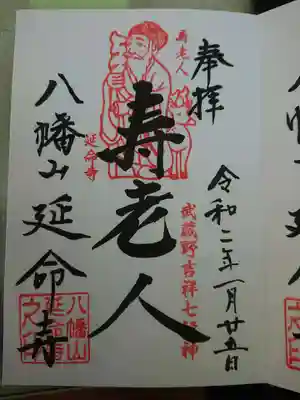 奉拝
令和二年一月廿五日
武蔵野吉祥七福神
寿老人
寿老人
延命寺
八幡山延命寺
八幡山
延命寺
之印